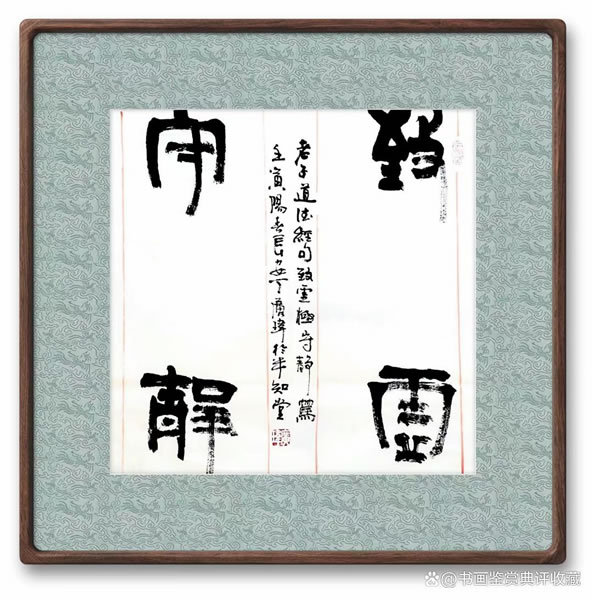 致虛
守靜
老子道德經句致虛極守靜篤
壬寅陽春於半知堂
书画鉴赏典评收藏